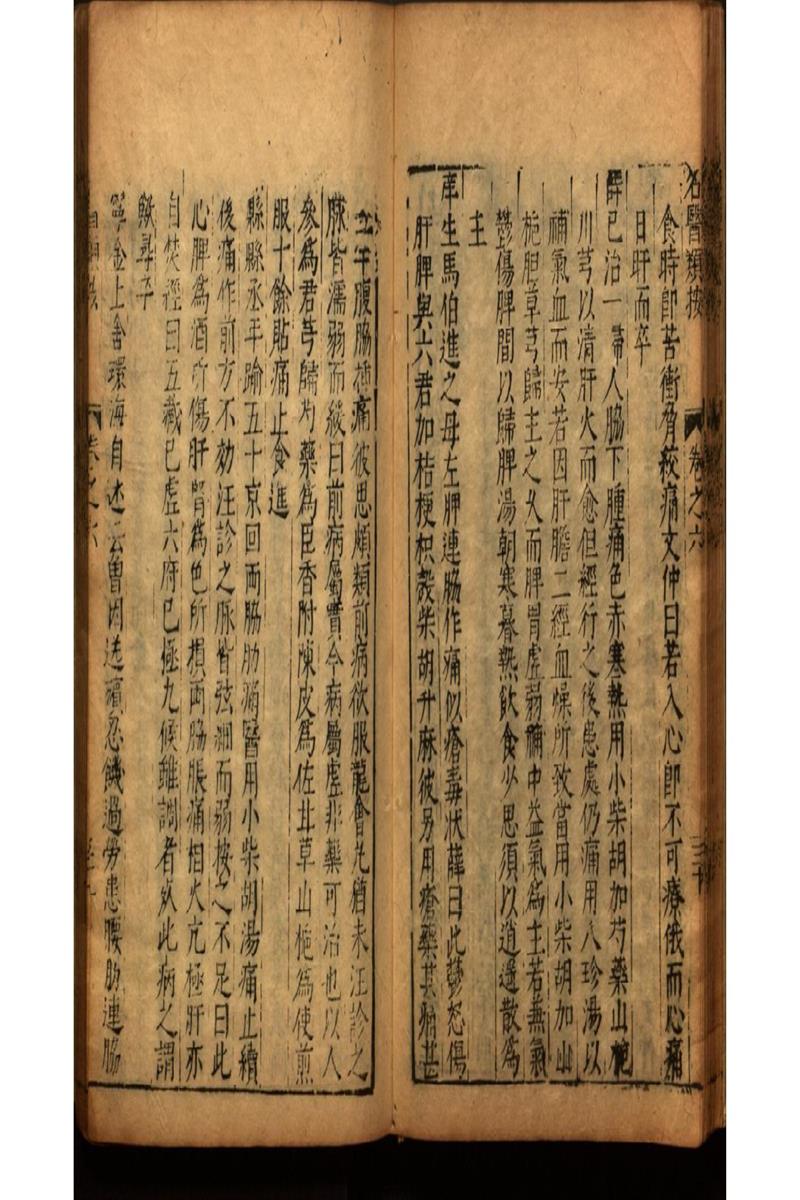 名醫類按
卷之六
食時卽苦衝脅絞痛文仲曰若入心卽不可療俄而心痛
日旰而卒
薛已治一婦人脇下腫痛色赤寒熱用小柴胡加芍藥山梔
川芎以清肝火而愈但經行之後患處仍痛用八珍湯以
補氣血而安若因肝膽二經血燥所致當用小柴胡加山
梔胆草芎歸主之久而脾胃虛弱補中益氣爲主若兼氣
鬱傷脾間以歸脾湯朝寒暮熱飲食少思須以逍遥散爲
主
庠生馬伯進之母左胛連脇作痛似瘡毒狀薛曰此鬱怒傷
肝脾與六君加桔梗枳殼柴胡升麻彼另用瘡藥其痛甚
年腹脇極痛彼思頗類前病欲服龍會丸猶未汪診之
脉皆濡弱而緩曰前病屬實今病屬虛非藥可治也以人
參爲君芎歸芍藥爲臣香附陳皮爲佐甘草山梔爲使煎
服十餘貼痛止食進
縣丞年踰五十京回兩脇肋痛醫用小柴胡湯痛止續
後痛作前方不効汪診之脉皆弦細而弱按之不足曰此
心脾爲酒所傷肝腎爲色所損兩脇脹痛相火亢極肝亦
自焚經曰五藏已虛六府已極九候雖調者死此病之謂
歟尋卒
金上舍環海自述云曽因送殯忍饑過勞患腰肋連脇
卷之六